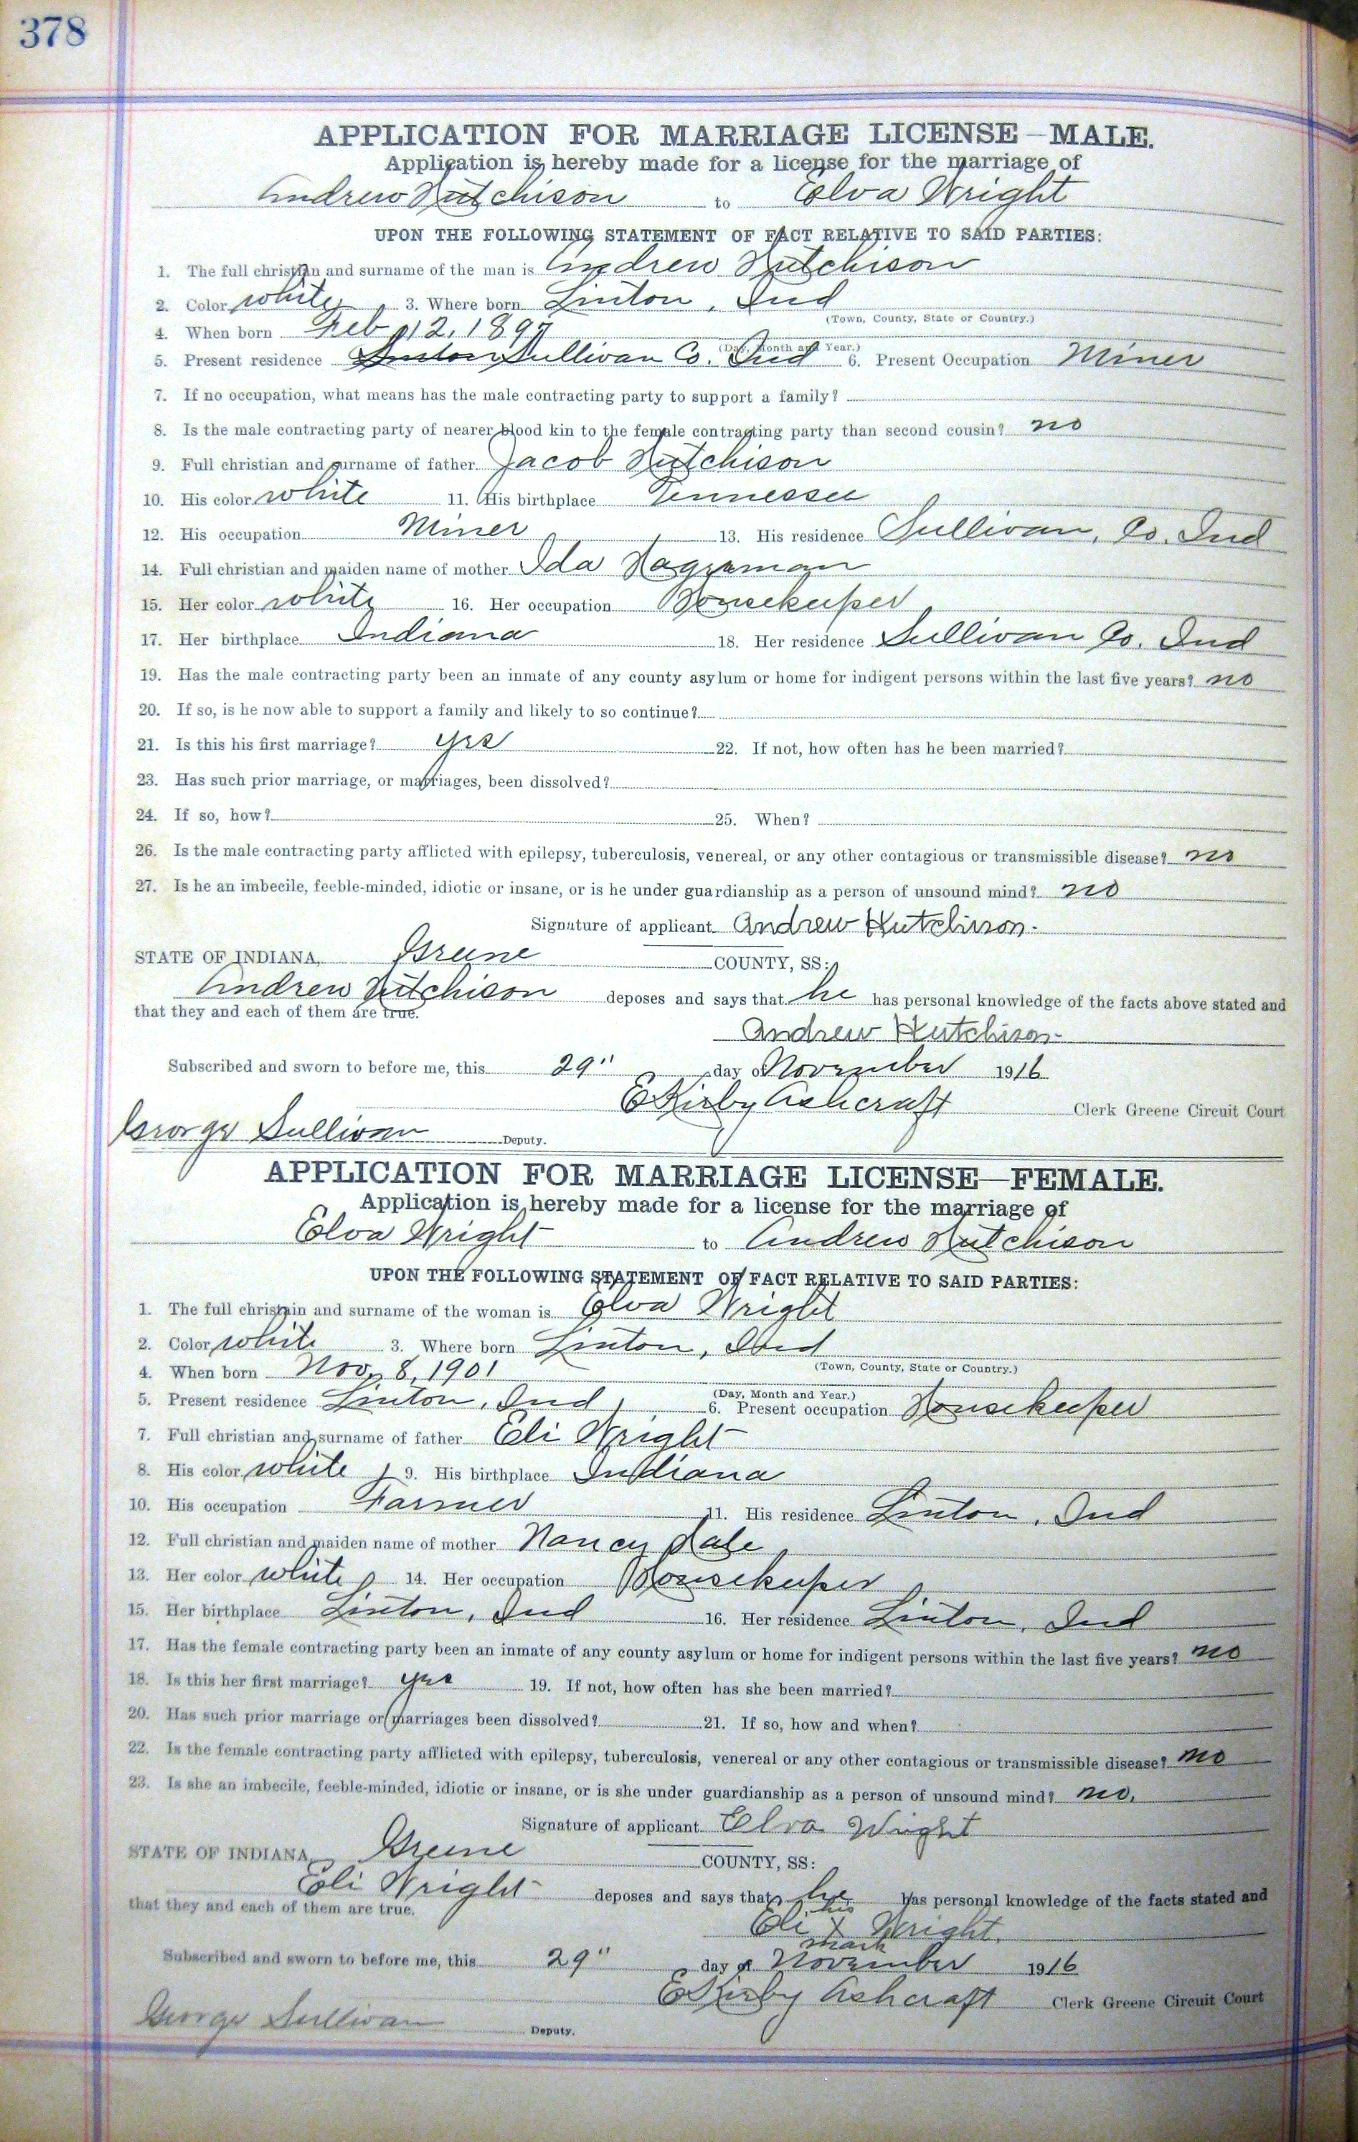 378
APPLICATION FOR MARRIAGE LICENSE—MALE.
Application is hereby made for a license for the marriage of
Andrew Hutchison to Elva Wright
UPON THE FOLLOWING STATEMENT OF FACT RELATIVE TO SAID PARTIES:
1. The full christian and surname of the man is Andrew Hutchison
2. Color white 3. Where born Linton, Ind
(Town, County, State or Country.)
4. When born Feb 12, 1897
(Day, Month and Year.)
5. Present residence Linton Sullivan Co. Ind 6. Present Occupation Miner
7. If no occupation, what means has the male contracting party to support a family?
8. Is the male contracting party of nearer blood kin to the female contracting party than second cousin? no
9. Full christian and surname of father Jacob Hutchison
10. His color white 11. His birthplace Tennessee
12. His occupation Miner 13. His residence Sullivan, Co. Ind
14. Full christian and maiden name of mother Ida Hagerman
15. Her color white 16. Her occupation Housekeeper
17. Her birthplace Indiana 18. Her residence Sullivan Co. Ind
19. Has the male contracting party been an inmate of any county asylum or home for indigent persons within the last five years? no
20. If so, is he now able to support a family and likely to so continue?
21. Is this his first marriage? yes 22. If not, how often has he been married?
23. Has such prior marriage, or marriages, been dissolved?
24. If so, how? 25. When?
26. Is the male contracting party afflicted with epilepsy, tuberculosis, venereal, or any other contagious or transmissible disease? no
27. Is he an imbecile, feeble-minded, idiotic or insane, or is he under guardianship as a person of unsound mind? no
Signature of applicant Andrew Hutchison.
STATE OF INDIANA, Greene COUNTY, SS:
Andrew Hutchison deposes and says that he has personal knowledge of the facts above stated and
that they and each of them are true.
Andrew Hutchison.
Subscribed and sworn to before me, this 29" day of November 1916
E Kirby Ashcraft Clerk Greene Circuit Court
George Sullivan Deputy.
APPLICATION FOR MARRIAGE LICENSE—FEMALE.
Application is hereby made for a license for the marriage of
Elva Wright to Andrew Hutchison
UPON THE FOLLOWING STATEMENT OF FACT RELATIVE TO SAID PARTIES:
1. The full christain and surname of the woman is Elva Wright
2. Color white 3. Where born Linton, Ind
(Town, County, State or Country.)
4. When born Nov. 8, 1901
(Day, Month and Year.)
5. Present residence Linton, Ind 6. Present occupation Housekeeper
7. Full christian and surname of father Eli Wright
8. His color white 9. His birthplace Indiana
10. His occupation Farmer 11. His residence Linton, Ind
12. Full christian and maiden name of mother Nancy Hale
13. Her color white 14. Her occupation Housekeeper
15. Her birthplace Linton, Ind 16. Her residence Linton, Ind
17. Has the female contracting party been an inmate of any county asylum or home for indigent persons within the last five years? no
18. Is this her first marriage? yes 19. If not, how often has she been married?
20. Has such prior marriage or marriages been dissolved? 21. If so, how and when?
22. Is the female contracting party afflicted with epilepsy, tuberculosis, venereal or any other contagious or transmissible disease? no
23. Is she an imbecile, feeble-minded, idiotic or insane, or is she under guardianship as a person of unsound mind? no.
Signature of applicant Elva Wright
STATE OF INDIANA, Greene COUNTY, SS:
Eli Wright deposes and says that he has personal knowledge of the facts stated and
that they and each of them are true.
his
Eli X Wright.
mark
Subscribed and sworn to before me, this 29" day of November 1916
E Kirby Ashcraft Clerk Greene Circuit Court
George Sullivan Deputy.